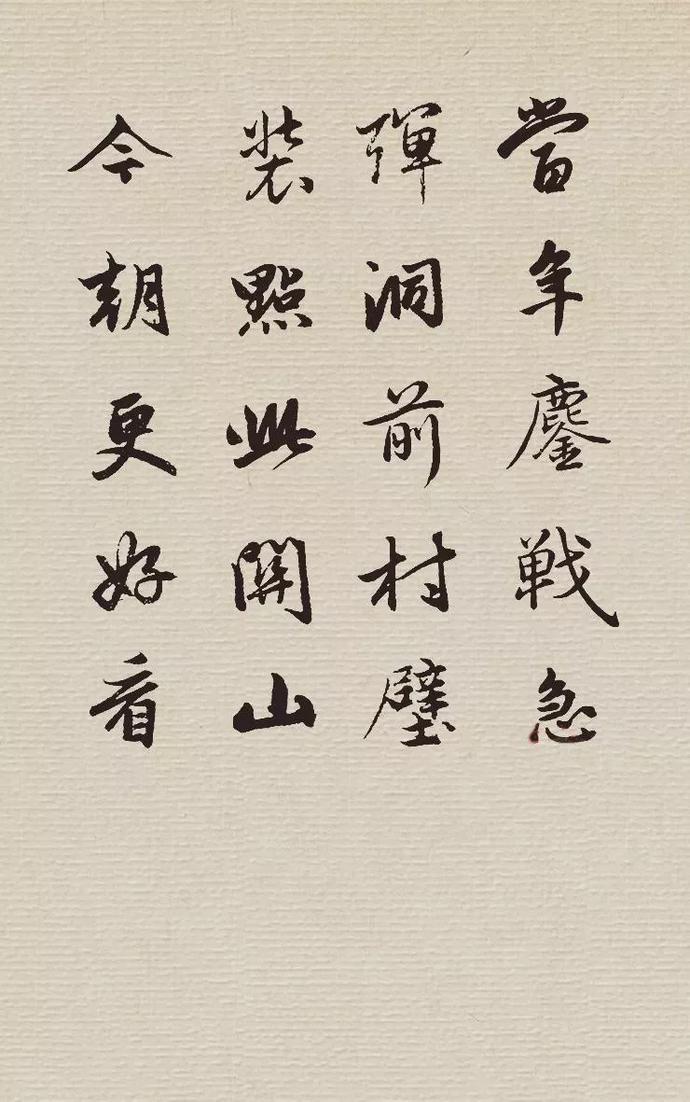 當年鏖戰急
彈洞前村壁
裝點此關山
今朝更好看